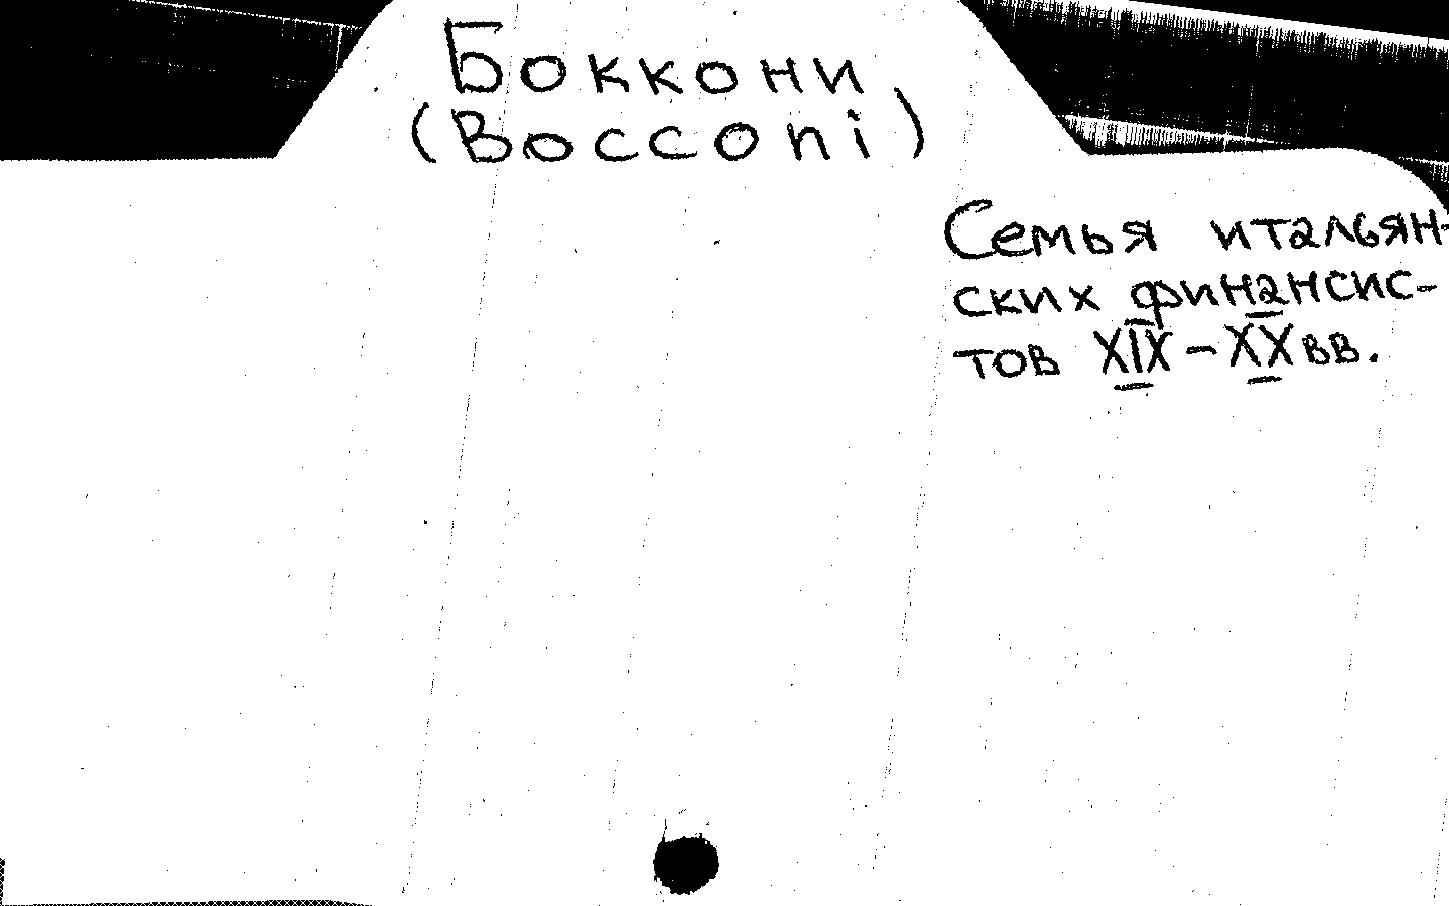 Боккони
(Bocconi)
Семья итальян-
ских финансис-
тов XIX-XX вв.